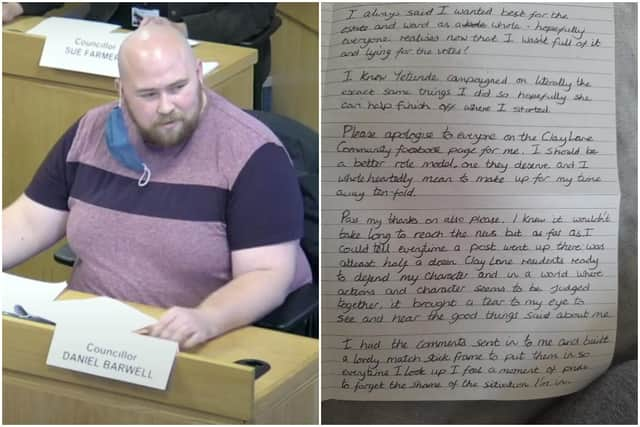 Councillor
SUE FARMER
Councillor
DANIEL BARWELL
I always said I wanted best for the
estate and ward as a whole - hopefully
everyone realises now that I wasnt full of it
and lying for the votes!
I know Yetunde campaigned on literally the
exact same things I did so hopefully she
can help finish off where I started.
Please apologise to everyone on the Clay Lane
Community facebook page for me. I should be
a better role model, one they deserve and I
whole heartedly mean to make up for my time
away ten-fold.
Pass my thanks on also please. I knew it wouldn't
take long to reach the news but as far as I
could tell everytime a post went up there was
atleast half a dozen Clay Lane residents ready
to defend my character and in a world where
actions and character seems to be judged
together, it brought a tear to my eye to
see and hear the good things said about me.
I had the comments sent in to me and built
a lovely match stick frame to put them in so
everytime I look up I feel a moment of pride
to forget the shame of the situation I'm in.